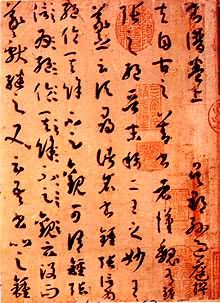 書譜卷上　吳郡孫過庭撰
夫自古之善書者漢魏有鍾
張之絕晉末稱二王之妙王
羲之云頃尋諸名書鍾張信為
絕倫其餘不足觀可謂鍾張
信為絕倫其餘不足觀云沒而
羲獻繼之又云吾書比之鍾